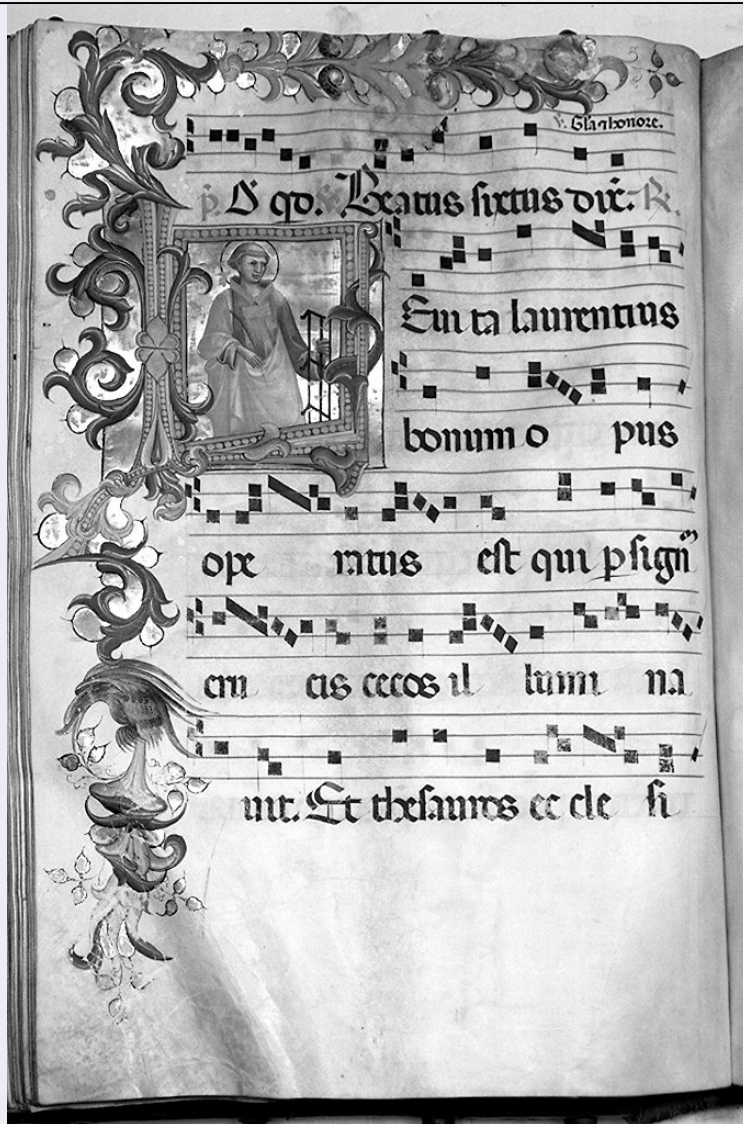 ℣. Gla ⁊ honore.
qd. Beatus sixtus dix̄. R.
Eui ta laurentius
bonum o pus
ope ratus est qui p signū
cru cis cecos il lumi na
uit. Et thesauros ec cle si